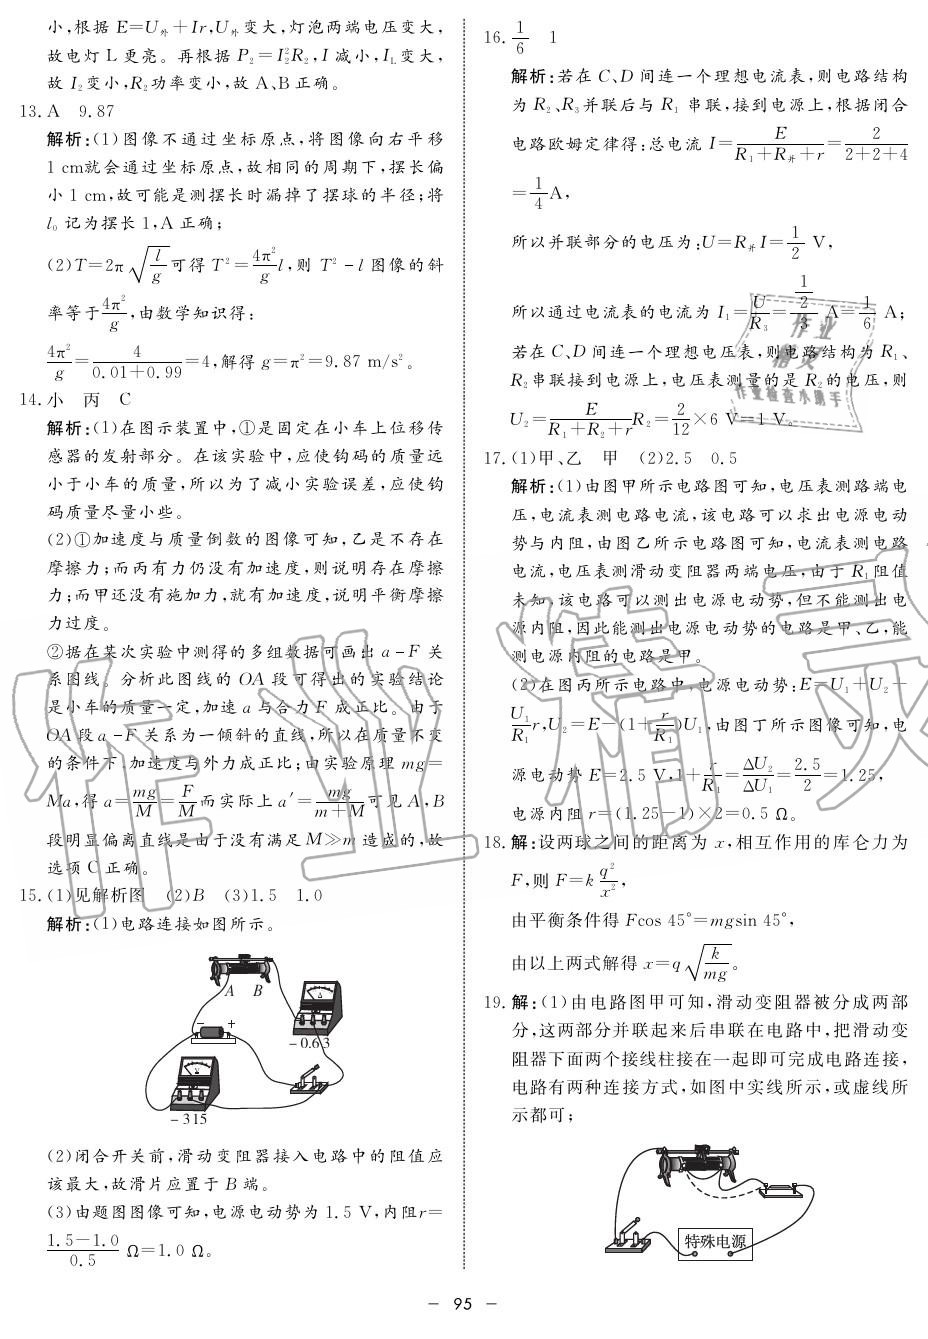 小,根据 E=U外+Ir,U外变大,灯泡两端电压变大,
故电灯 L 更亮。再根据 P₂=I₂²R₂,I 减小,I_L变大,
故 I₂变小,R₂功率变小,故 A、B 正确。
13. A 9.87
解析:(1)图像不通过坐标原点,将图像向右平移
1 cm就会通过坐标原点,故相同的周期下,摆长偏
小 1 cm,故可能是测摆长时漏掉了摆球的半径;将
l₀ 记为摆长 1,A 正确;
(2)T=2π√(l/g)可得 T²=4π²/g l,则 T²-l 图像的斜
率等于4π²/g,由数学知识得:
4π²/g=4/(0.01+0.99)=4,解得 g=π²=9.87 m/s²。
14. 小 丙 C
解析:(1)在图示装置中,①是固定在小车上位移传
感器的发射部分。在该实验中,应使钩码的质量远
小于小车的质量,所以为了减小实验误差,应使钩
码质量尽量小些。
(2)①加速度与质量倒数的图像可知,乙是不存在
摩擦力;而丙有力仍没有加速度,则说明存在摩擦
力;而甲还没有施加力,就有加速度,说明平衡摩擦
力过度。
②据在某次实验中测得的多组数据可画出 a-F 关
系图线。分析此图线的 OA 段可得出的实验结论
是小车的质量一定,加速 a 与合力 F 成正比。由于
OA 段 a-F 关系为一倾斜的直线,所以在质量不变
的条件下,加速度与外力成正比;由实验原理 mg=
Ma,得 a=mg/M=F/M而实际上 a′=mg/(m+M)可见 A、B
段明显偏离直线是由于没有满足 M≫m 造成的,故
选项 C 正确。
15. (1)见解析图 (2)B (3)1.5 1.0
解析:(1)电路连接如图所示。
A B
A
- +
-0.6 3
V
-3 15
(2)闭合开关前,滑动变阻器接入电路中的阻值应
该最大,故滑片应置于 B 端。
(3)由题图图像可知,电源电动势为 1.5 V,内阻r=
(1.5-1.0)/0.5 Ω=1.0 Ω。
16. 1/6 1
解析:若在 C、D 间连一个理想电流表,则电路结构
为 R₂、R₃并联后与 R₁ 串联,接到电源上,根据闭合
电路欧姆定律得:总电流 I=E/(R₁+R并+r)=2/(2+2+4)
=1/4 A,
所以并联部分的电压为:U=R并I=1/2 V,
所以通过电流表的电流为 I₁=U/R₃=(1/2)/3 A=1/6 A;
若在 C、D 间连一个理想电压表,则电路结构为 R₁、
R₂串联接到电源上,电压表测量的是 R₂的电压,则
U₂=E/(R₁+R₂+r)R₂=2/12×6 V=1 V。
17. (1)甲、乙 甲 (2)2.5 0.5
解析:(1)由图甲所示电路图可知,电压表测路端电
压,电流表测电路电流,该电路可以求出电源电动
势与内阻,由图乙所示电路图可知,电流表测电路
电流,电压表测滑动变阻器两端电压,由于 R₁阻值
未知,该电路可以测出电源电动势,但不能测出电
源内阻,因此能测出电源电动势的电路是甲、乙,能
测电源内阻的电路是甲。
(2)在图丙所示电路中,电源电动势:E=U₁+U₂+
U₁/R₁ r,U₂=E-(1+r/R₁)U₁,由图丁所示图像可知,电
源电动势 E=2.5 V,1+r/R₁=ΔU₂/ΔU₁=2.5/2=1.25,
电源内阻 r=(1.25-1)×2=0.5 Ω。
18. 解:设两球之间的距离为 x,相互作用的库仑力为
F,则 F=k q²/x²,
由平衡条件得 Fcos 45°=mgsin 45°,
由以上两式解得 x=q√(k/mg)。
19. 解:(1)由电路图甲可知,滑动变阻器被分成两部
分,这两部分并联起来后串联在电路中,把滑动变
阻器下面两个接线柱接在一起即可完成电路连接,
电路有两种连接方式,如图中实线所示,或虚线所
示都可;
特殊电源
作业精灵
作业
精灵
作业检查小助手
- 95 -